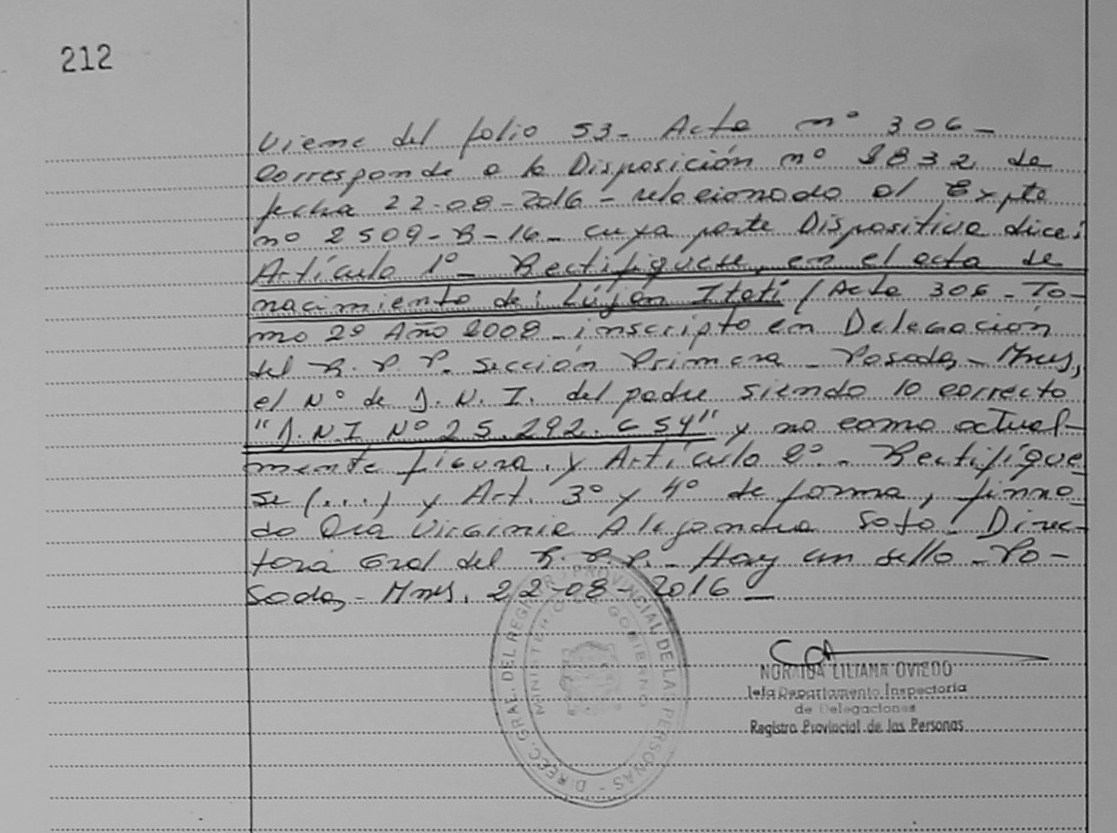 212
Viene del folio 53- Acta nº 306-
Corresponde a la Disposición nº 1832 de
fecha 22-08-2016- relacionado al Expte
nº 2509-R-16- cuya parte Dispositiva dice:
Artículo 1º- Rectifíquese, en el acta de
nacimiento de: Luján Itatí / Acta 306- To-
mo 2º Año 2008- inscripto en Delegación
del R.P.P. Sección Primera- Posadas- Mnes,
el Nº de D.N.I. del padre siendo lo correcto
"D.N.I Nº 25.292.654" y no como actual-
mente figura. y Artículo 2º- Rectifíque
se (....) y Art. 3º y 4º de forma, firma
do Dra Virginia Alejandra Soto- Direc-
tora Gral del R.P.P.- Hay un sello- Po-
sadas- Mnes. 22-08-2016-
DIRECC. GRAL. DEL REGISTRO PROVINCIAL DE LAS PERSONAS
MINISTERIO DE GOBIERNO
LILIANA OVIEDO
Jefa Departamento Inspectoria
de Delegaciones
Registro Provincial de las Personas